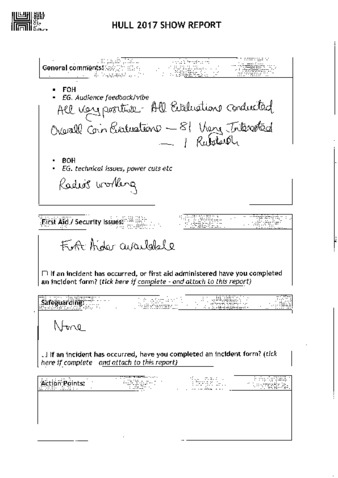 HULL 2017 SHOW REPORT
General comments:
• FOH
• EG. Audience feedback/vibe
All very positive. All Evaluations conducted
Overall Coin Evaluations – 81 Very Interested
– 1
• BOH
• EG. technical issues, power cuts etc
Radios working
First Aid / Security Issues:
First Aider available
☐ If an incident has occurred, or first aid administered have you completed
an incident form? (tick here if complete - and attach to this report)
Safeguarding:
None
☐ If an incident has occurred, have you completed an incident form? (tick
here if complete - and attach to this report)
Action Points: